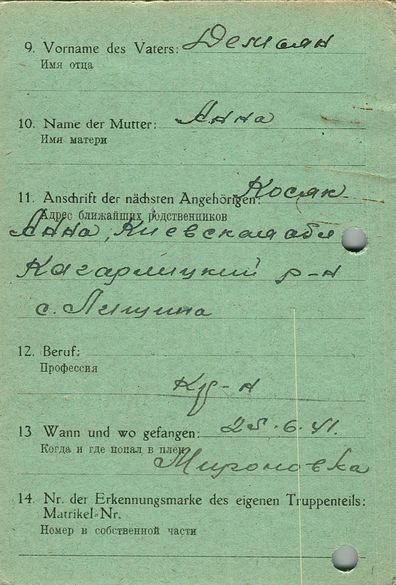 9. Vorname des Vaters: Демьян
Имя отца
10. Name der Mutter: Анна
Имя матери
11. Anschrift der nächsten Angehörigen: Косяк
Адрес ближайших родственников
Анна, Киевская обл
Кагарлицкий р-н
с. Лещина
12. Beruf:
Профессия
кр-н
13 Wann und wo gefangen: 25.6.41.
Когда и где попал в плен
Мироновка
14. Nr. der Erkennungsmarke des eigenen Truppenteils:
Matrikel-Nr.
Номер в собственной части